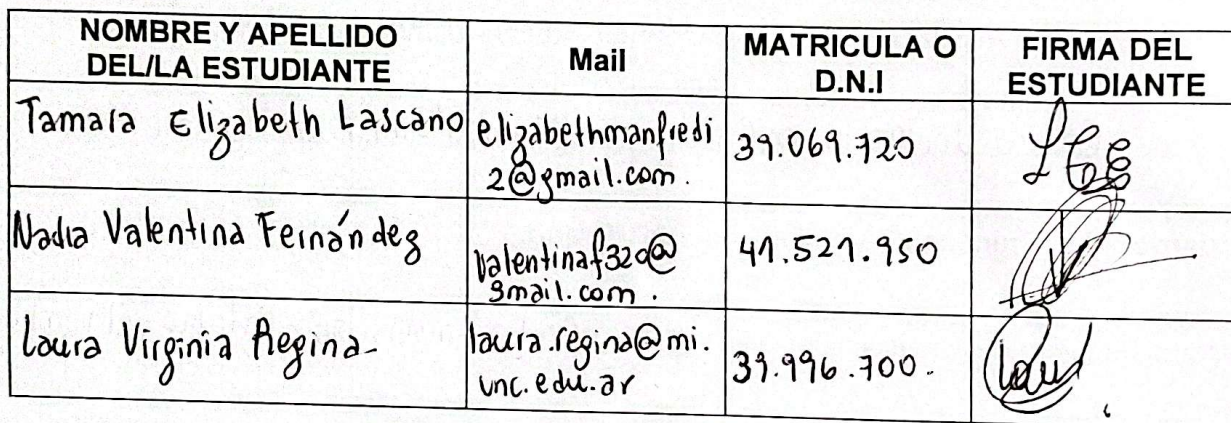 NOMBRE Y APELLIDO
DEL/LA ESTUDIANTE
Mail
MATRICULA O
D.N.I
FIRMA DEL
ESTUDIANTE
Tamara Elizabeth Lascano
elizabethmanfredi
2@gmail.com.
39.069.720
Nadia Valentina Fernández
valentinaf320@
gmail.com.
41.521.950
Laura Virginia Regina-
laura.regina@mi.
unc.edu.ar
39.996.700.